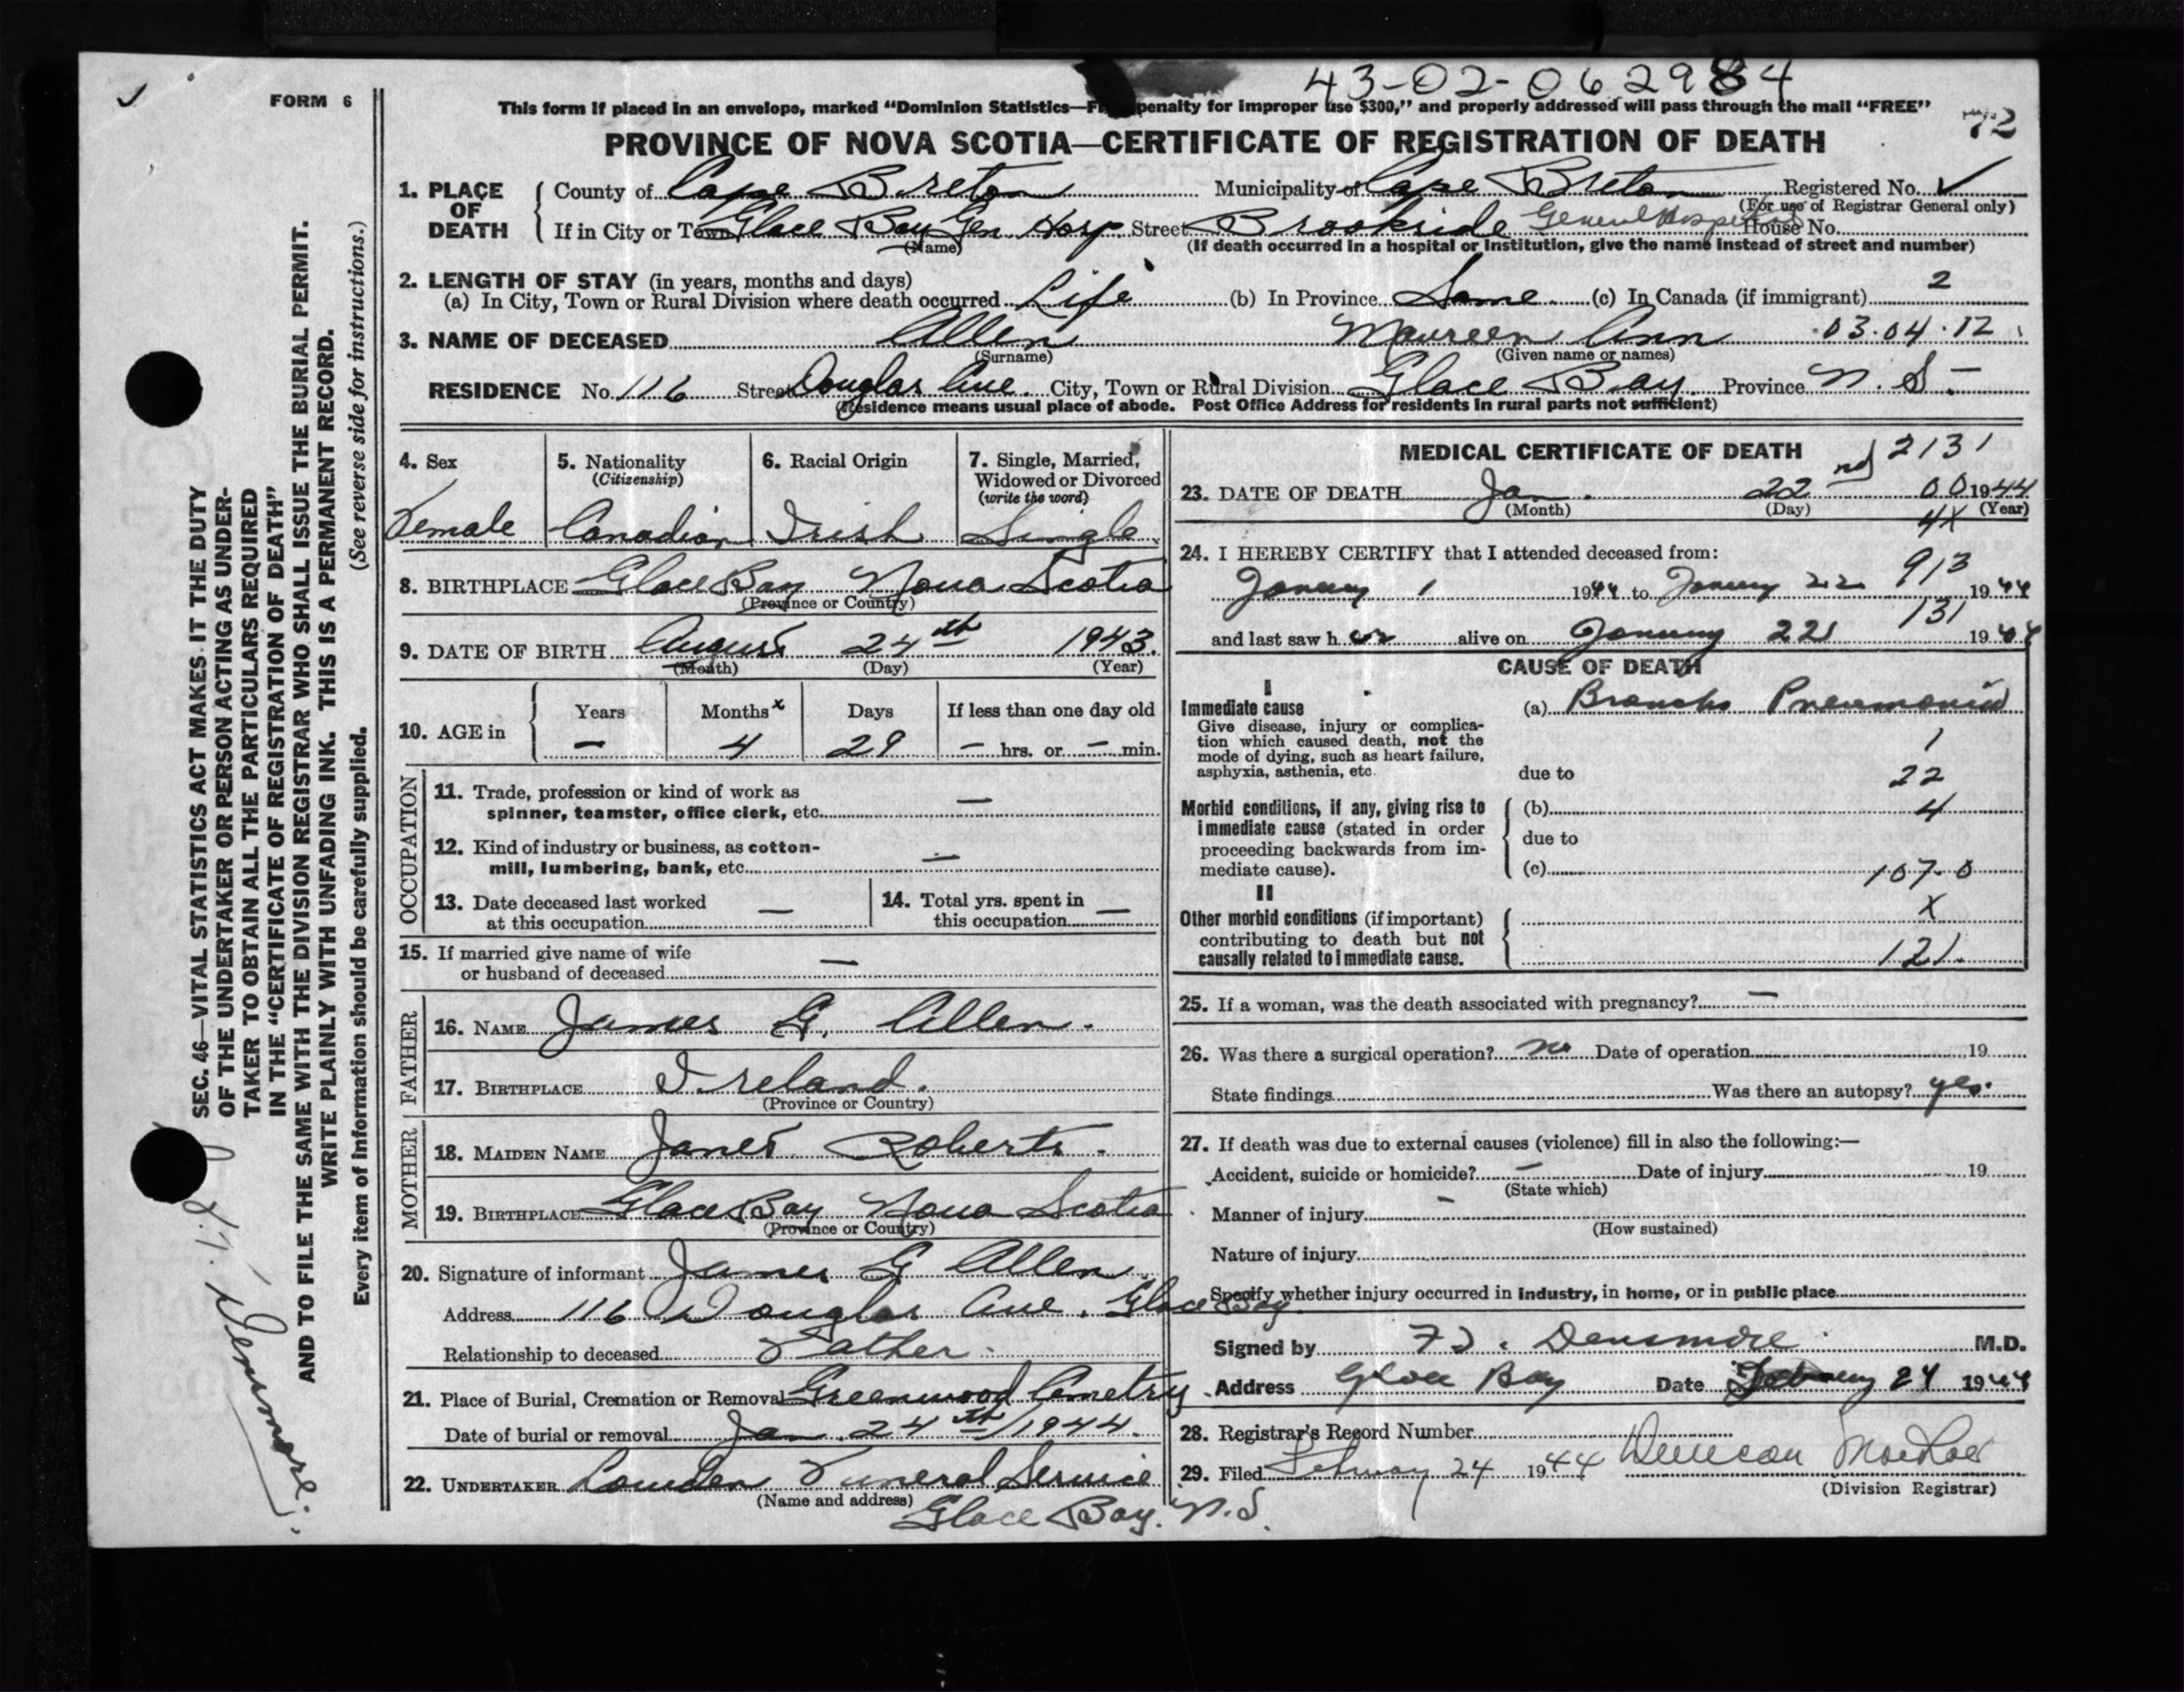 43-02-062984
FORM 6
This form if placed in an envelope, marked “Dominion Statistics—F penalty for improper use $300,” and properly addressed will pass through the mail “FREE”
72
PROVINCE OF NOVA SCOTIA—CERTIFICATE OF REGISTRATION OF DEATH
1. PLACE OF DEATH County of Cape Breton Municipality of Cape Breton Registered No. ✓
(For use of Registrar General only)
If in City or Town Glace Bay Gen Hosp Street Brookside General Hospital House No.
(Name) (If death occurred in a hospital or institution, give the name instead of street and number)
2. LENGTH OF STAY (in years, months and days)
(a) In City, Town or Rural Division where death occurred Life (b) In Province Same (c) In Canada (if immigrant) 2
3. NAME OF DECEASED Allen Maureen Ann 03.04.12
(Surname) (Given name or names)
RESIDENCE No. 116 Street Douglas Ave. City, Town or Rural Division Glace Bay. Province N.S.
(Residence means usual place of abode. Post Office Address for residents in rural parts not sufficient)
4. Sex 5. Nationality (Citizenship) 6. Racial Origin 7. Single, Married, Widowed or Divorced (write the word)
Female Canadian Irish Single
8. BIRTHPLACE Glace Bay Nova Scotia
(Province or Country)
9. DATE OF BIRTH August 24th 1943.
(Month) (Day) (Year)
10. AGE in Years Months x Days If less than one day old
— 4 29 — hrs. or — min.
OCCUPATION
11. Trade, profession or kind of work as
spinner, teamster, office clerk, etc. —
12. Kind of industry or business, as cotton-
mill, lumbering, bank, etc. —
13. Date deceased last worked
at this occupation —
14. Total yrs. spent in
this occupation —
15. If married give name of wife
or husband of deceased —
FATHER
16. NAME James G. Allen.
17. BIRTHPLACE Ireland.
(Province or Country)
MOTHER
18. MAIDEN NAME Janet Roberts.
19. BIRTHPLACE Glace Bay Nova Scotia
(Province or Country)
20. Signature of informant James G Allen
Address 116 Douglas Ave. Glace Bay
Relationship to deceased Father
21. Place of Burial, Cremation or Removal Greenwood Cemetry
Date of burial or removal Jan. 24th/1944.
22. UNDERTAKER Lowden Funeral Service
(Name and address) Glace Bay. N.S.
MEDICAL CERTIFICATE OF DEATH 2131
23. DATE OF DEATH Jan. 22nd 00 1944
(Month) (Day) (Year)
4x
24. I HEREBY CERTIFY that I attended deceased from:
913
January 1 1944 to January 22 1944
131
and last saw h er alive on January 22 1944
CAUSE OF DEATH
I
Immediate cause (a) Broncho Pneumonia
Give disease, injury or complica-
tion which caused death, not the
mode of dying, such as heart failure,
asphyxia, asthenia, etc.
1
due to 22
Morbid conditions, if any, giving rise to
immediate cause (stated in order
proceeding backwards from im-
mediate cause).
(b) 4
due to
(c) 107-0
II
Other morbid conditions (if important)
contributing to death but not
causally related to immediate cause.
X
121.
25. If a woman, was the death associated with pregnancy? —
26. Was there a surgical operation? no Date of operation 19
State findings Was there an autopsy? yes.
27. If death was due to external causes (violence) fill in also the following:—
Accident, suicide or homicide? — Date of injury 19
(State which)
Manner of injury
(How sustained)
Nature of injury
Specify whether injury occurred in industry, in home, or in public place
Signed by Densmore M.D.
Address Glace Bay Date February 24 1944
28. Registrar's Record Number
29. Filed February 24 1944 Duncan
(Division Registrar)
SEC. 46—VITAL STATISTICS ACT MAKES IT THE DUTY
OF THE UNDERTAKER OR PERSON ACTING AS UNDER-
TAKER TO OBTAIN ALL THE PARTICULARS REQUIRED
IN THE “CERTIFICATE OF REGISTRATION OF DEATH”
AND TO FILE THE SAME WITH THE DIVISION REGISTRAR WHO SHALL ISSUE THE BURIAL PERMIT.
WRITE PLAINLY WITH UNFADING INK. THIS IS A PERMANENT RECORD.
(See reverse side for instructions.)
Every item of information should be carefully supplied.
Densmore